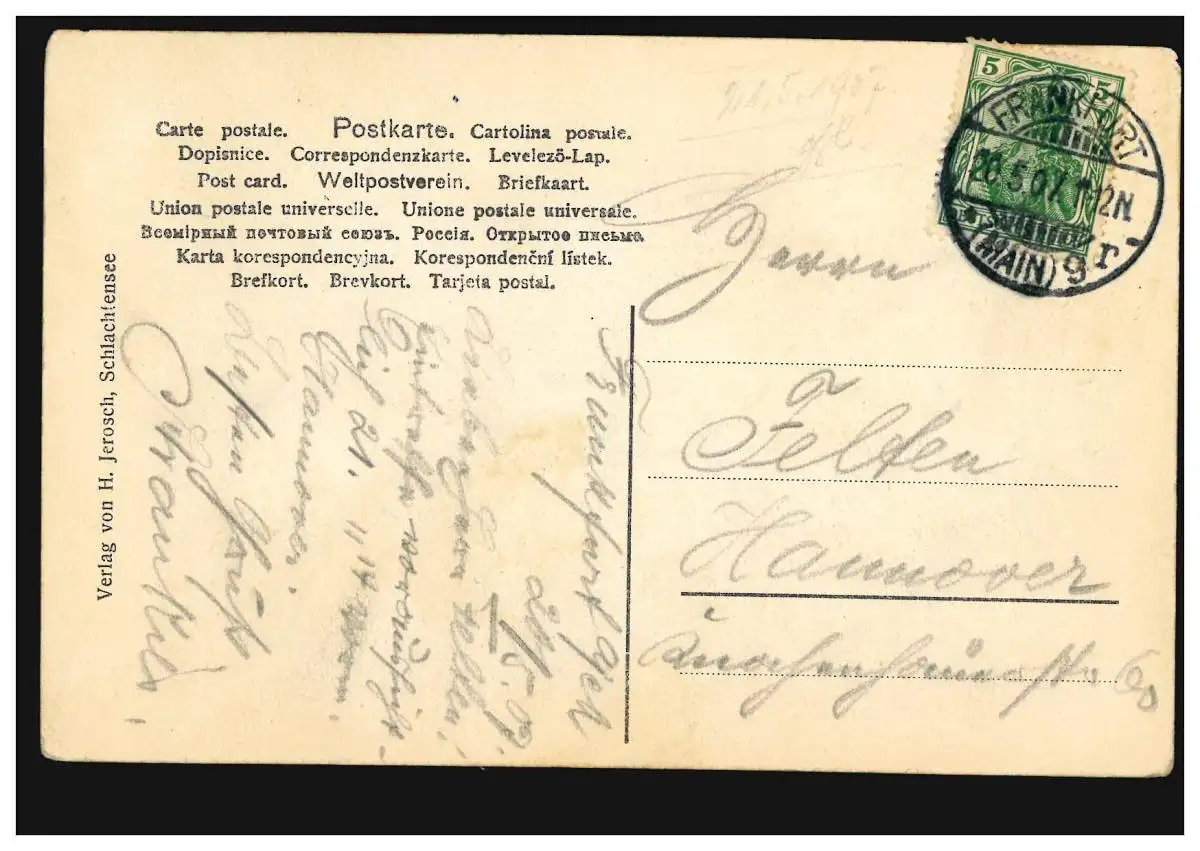 Carte postale. Postkarte. Cartolina postale.
Dopisnice. Correspondenzkarte. Levelező-Lap.
Post card. Weltpostverein. Briefkaart.
Union postale universelle. Unione postale universale.
Всемірный почтовый союзъ. Россія. Открытое письмо.
Karta korespondencyjna. Korespondenční lístek.
Brefkort. Brevkort. Tarjeta postal.
Verlag von H. Jerosch, Schlachtensee
5 5
FRANKFURT
20.5.07. 1-2N.
(MAIN) 9 r.
21.5.1907
Herrn
Felten
Hannover
60
Frankfurt
Lieber Herr Felten!
Eintreffe voraussicht-
21. 11 14
Hannover.
Gruß